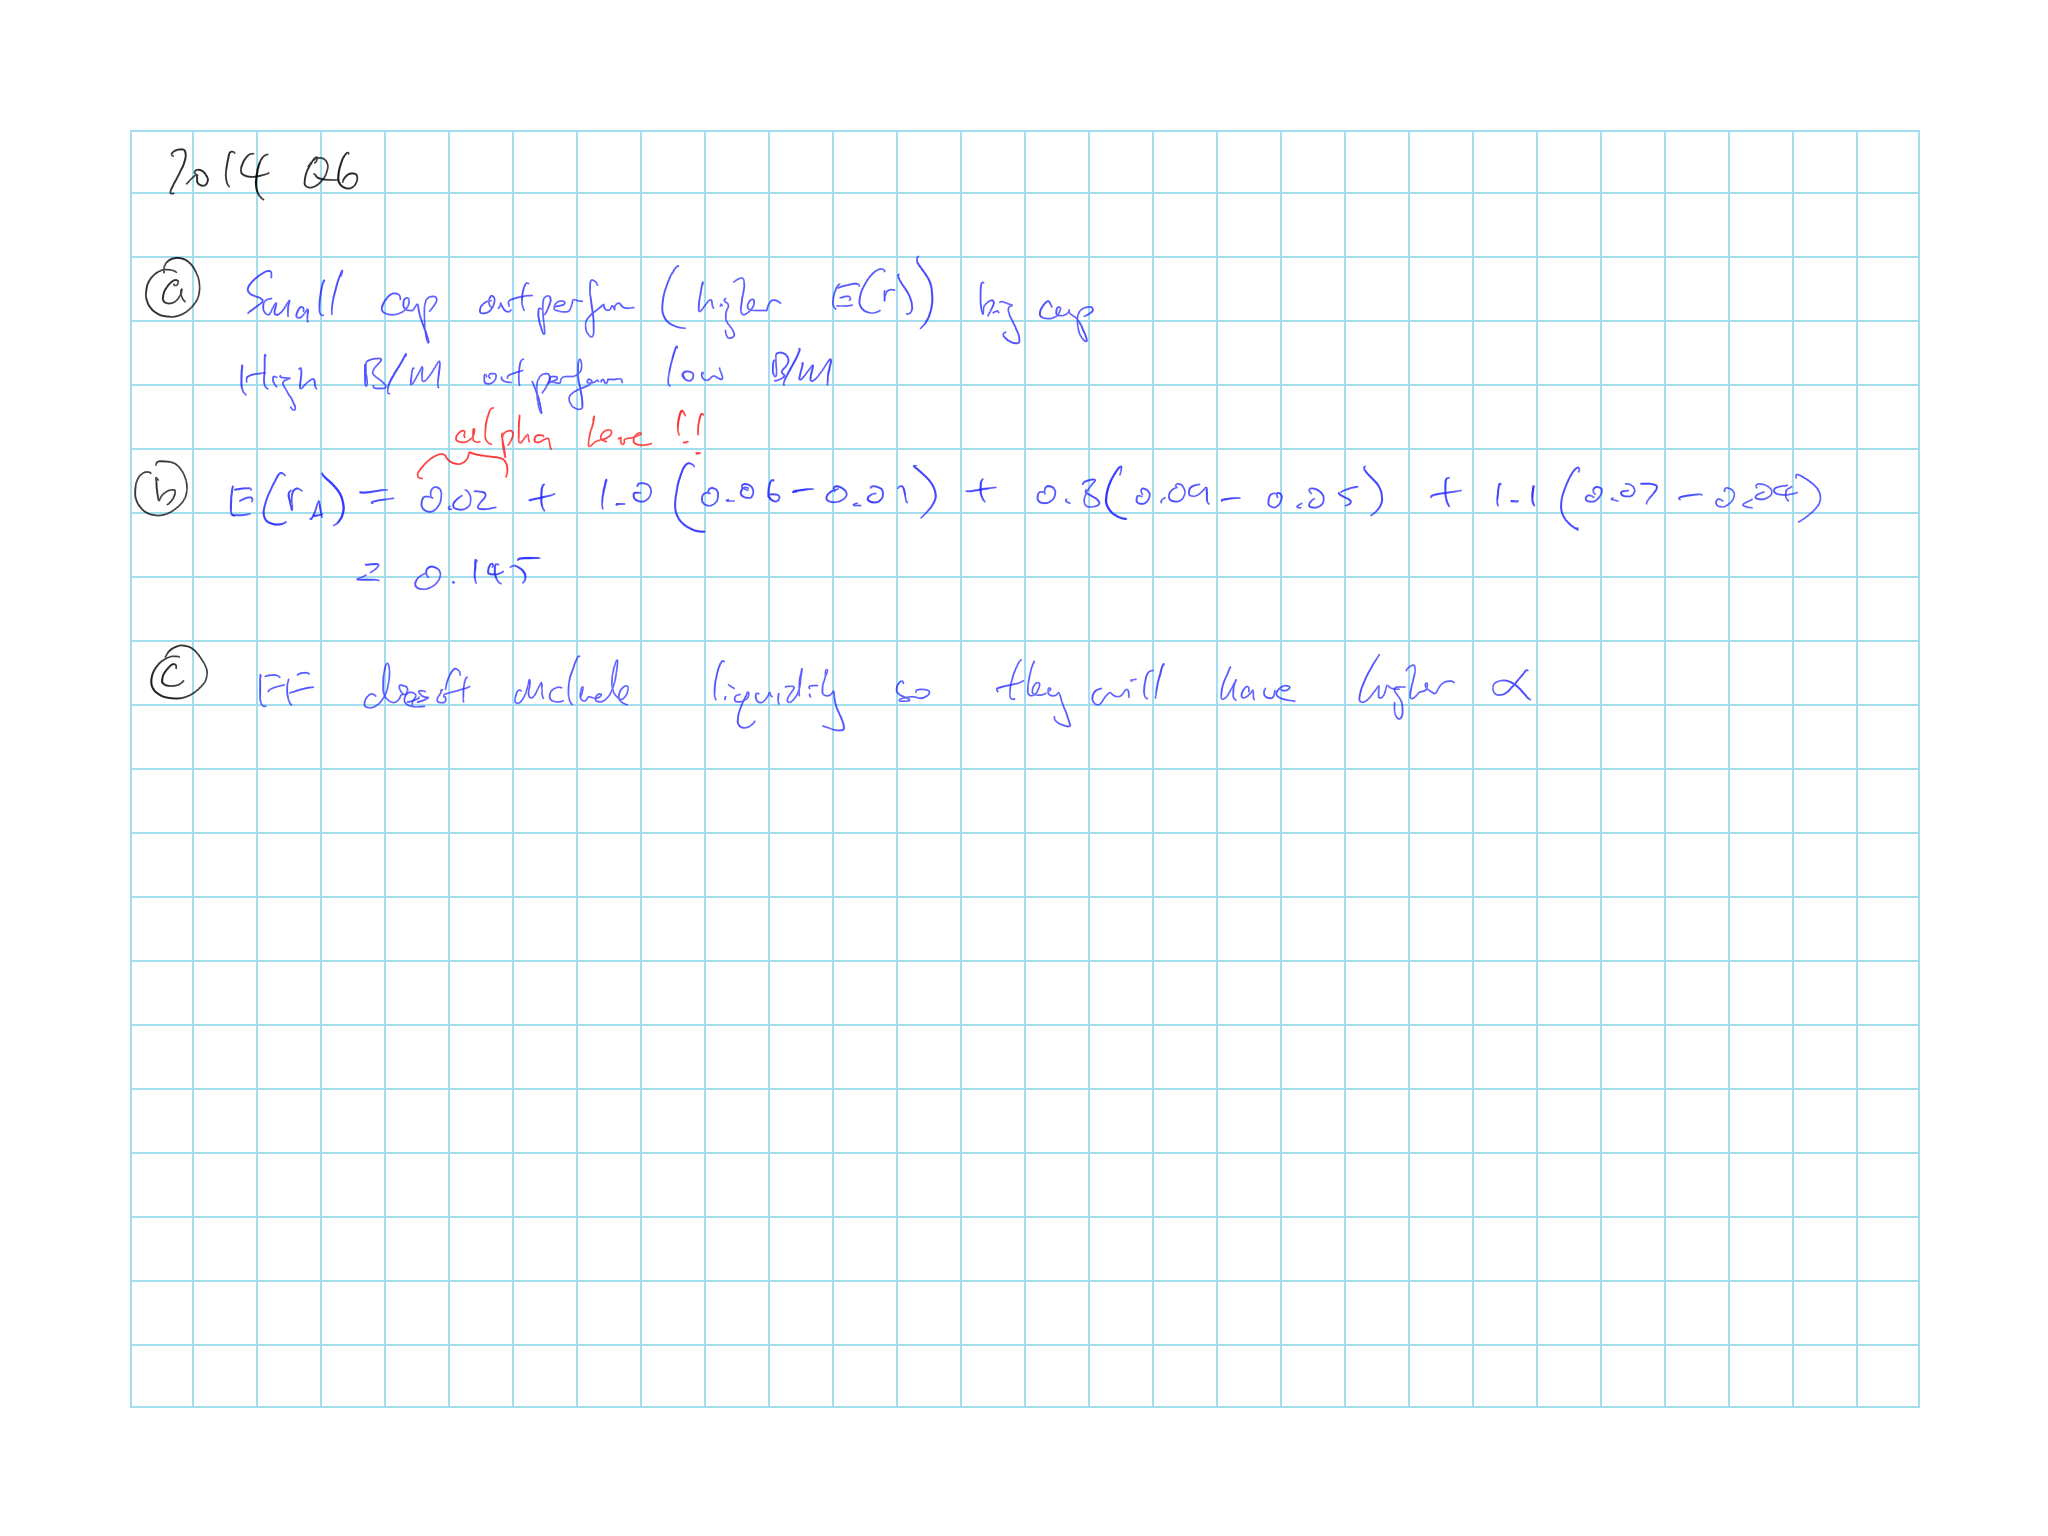 2014 Q6
(a) Small cap outperform (higher E(r)) big cap
High B/M outperform low B/M
alpha here !!
(b) E(r_A) = 0.02 + 1.0 (0.06 - 0.01) + 0.8(0.09 - 0.05) + 1.1 (0.07 - 0.04)
= 0.145
(c) FF doesn't include liquidity so they will have higher α